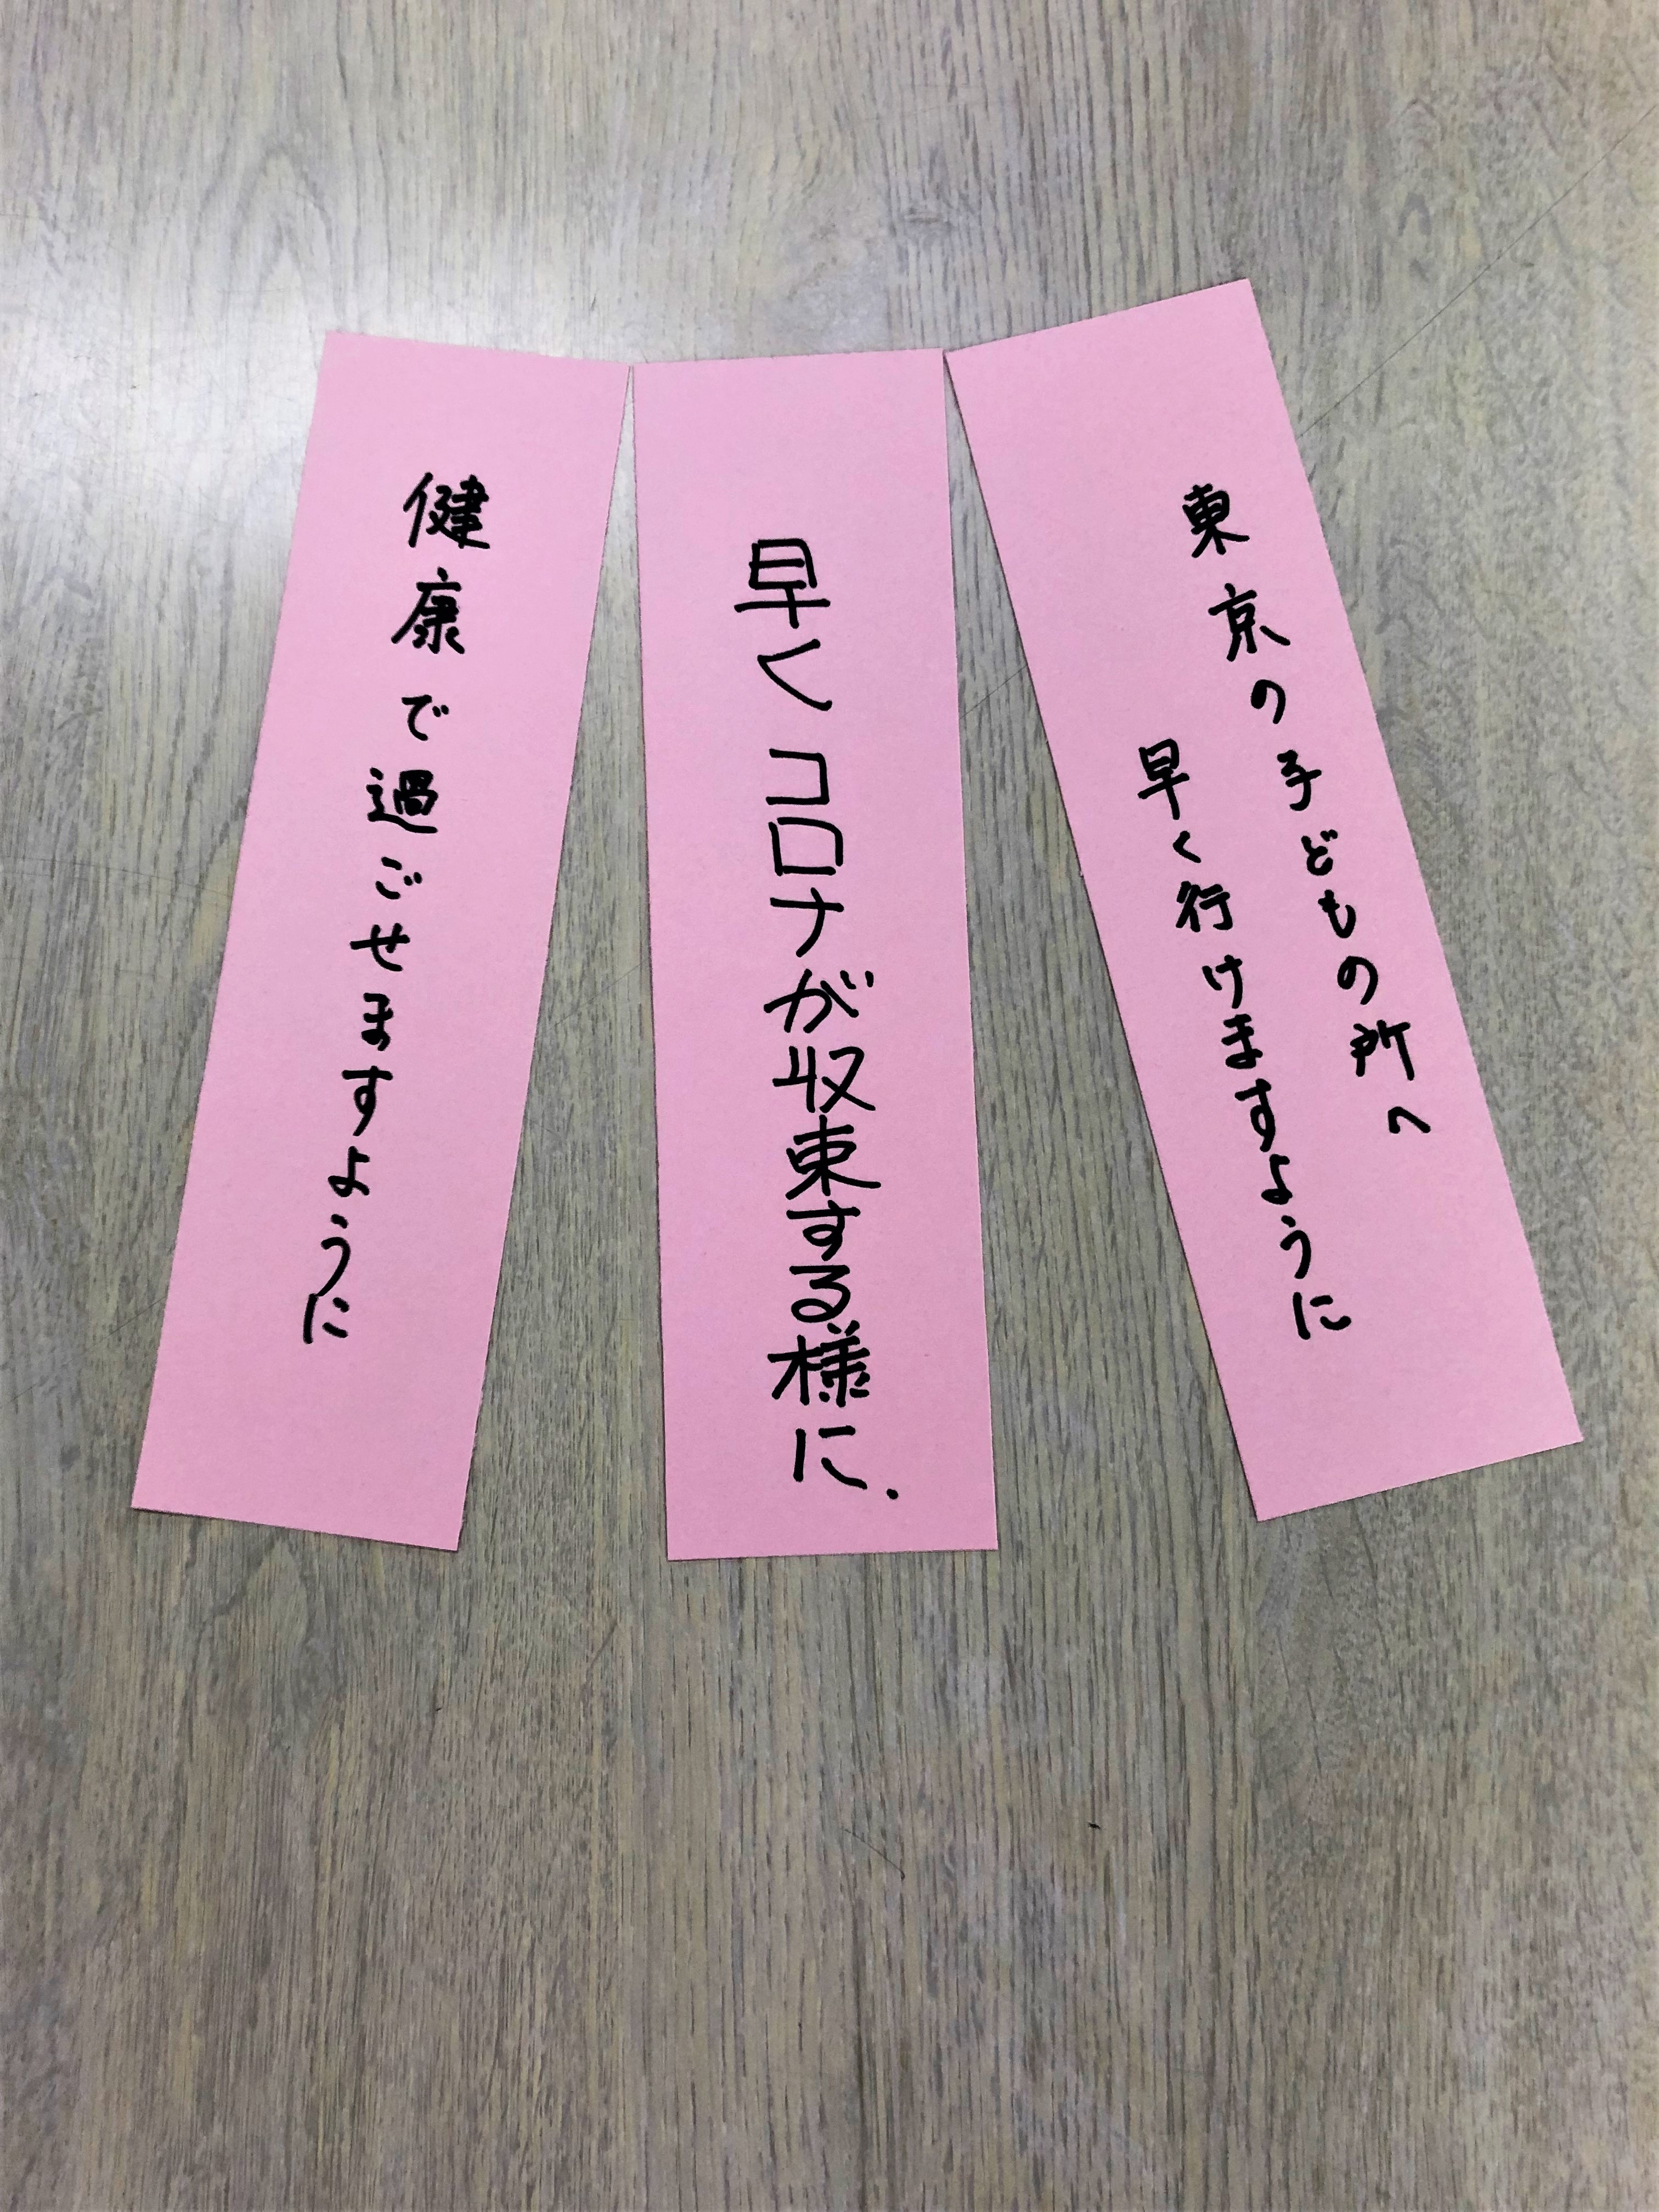 東京の子どもの所へ
早く行けますように
早くコロナが収束する様に.
健康で過ごせますように